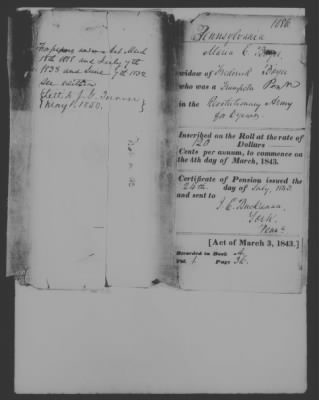 For papers under Act March
18th 1818 and July 7th
1838 and June 7th 1832
See within
Letter to J. G.
May 1. 1850.
1086
Pennsylvania
Maria C. Boyer
widow of Frederick Boyer
who was a
in the Revolutionary Army
for 2 years
Inscribed on the Roll at the rate of
120 Dollars
Cents per annum, to commence on
the 4th day of March, 1843.
Certificate of Pension issued the
24th day of July, 1843
and sent to
J. E. Buchanan,
York,
Penna
[Act of March 3, 1843.]
Recorded in Book A,
Vol. 1 Page 36.